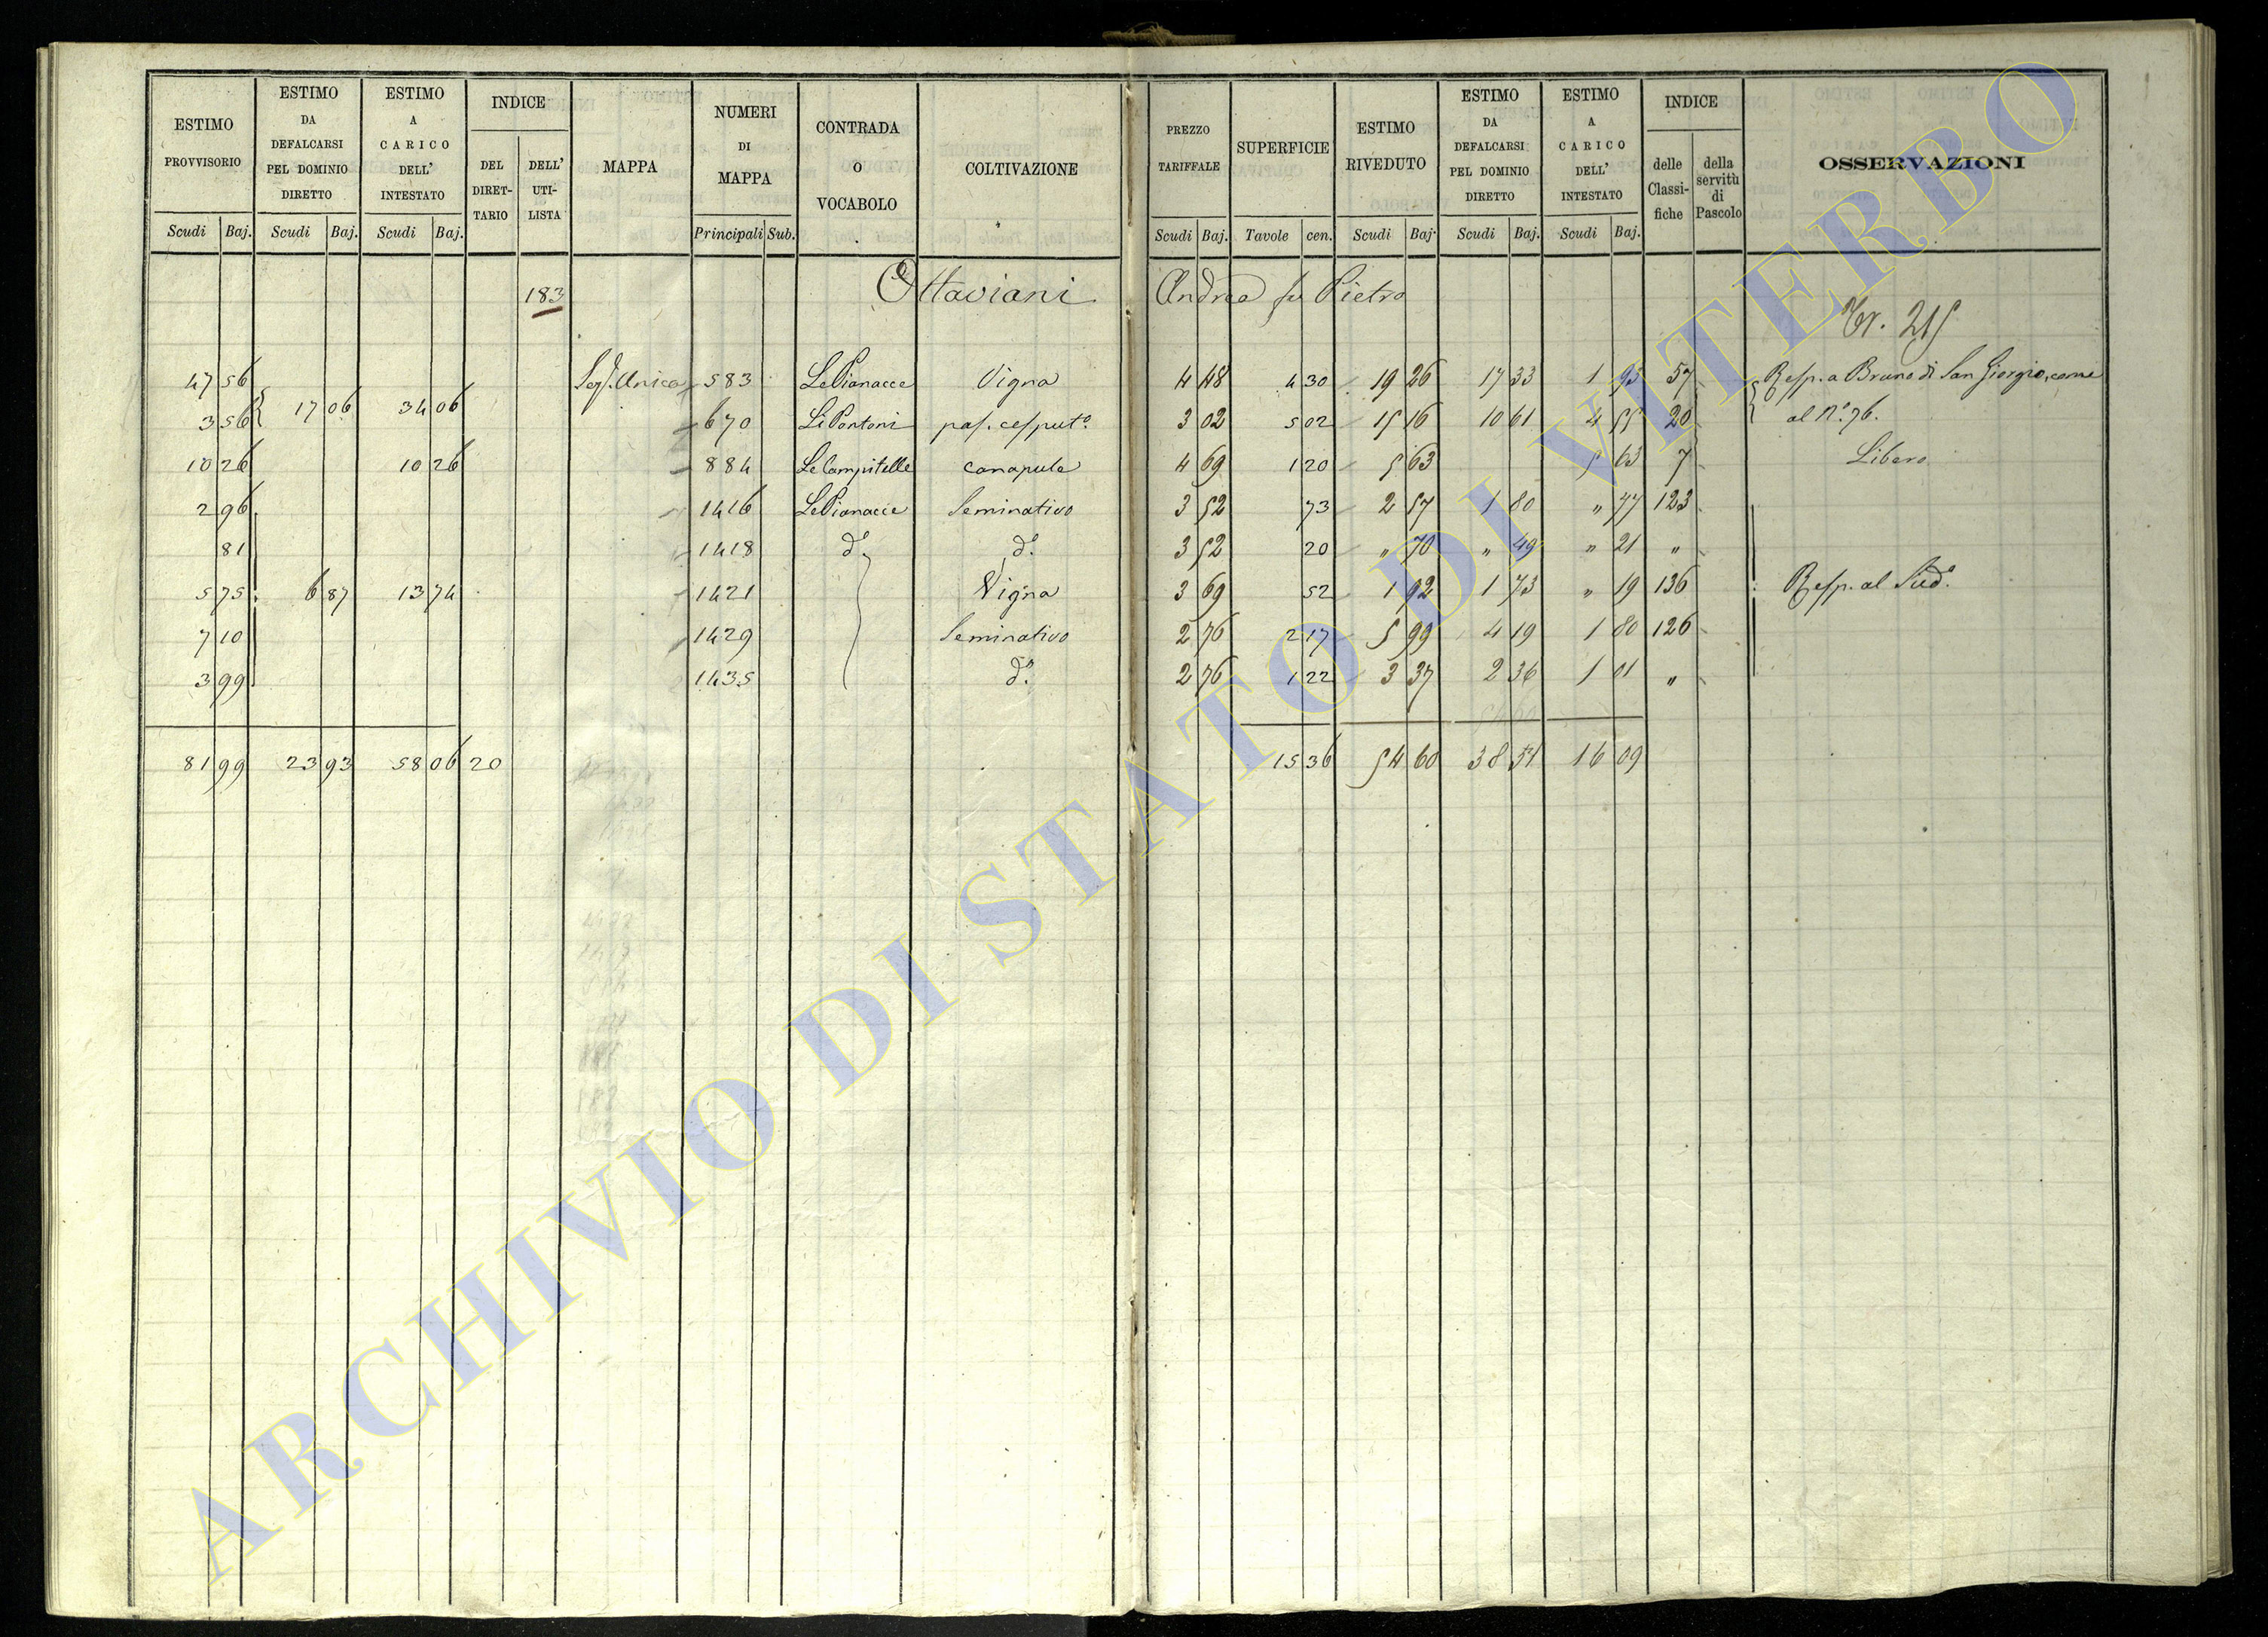 ESTIMO PROVVISORIO | ESTIMO DA DEFALCARSI PEL DOMINIO DIRETTO | ESTIMO A CARICO DELL' INTESTATO | INDICE | MAPPA | NUMERI DI MAPPA | CONTRADA O VOCABOLO | COLTIVAZIONE | PREZZO TARIFFALE | SUPERFICIE | ESTIMO RIVEDUTO | ESTIMO DA DEFALCARSI PEL DOMINIO DIRETTO | ESTIMO A CARICO DELL' INTESTATO | INDICE | OSSERVAZIONI
DEL DIRET-TARIO | DELL' UTI-LISTA | delle Classi-fiche | della servitù di Pascolo
Scudi | Baj. | Scudi | Baj. | Scudi | Baj. | Principali | Sub. | Scudi | Baj. | Tavole | cen. | Scudi | Baj. | Scudi | Baj. | Scudi | Baj.
183 Ottaviani Andrea fu Pietro
Tr. 215
47 56 Sez. Unica 583 Le Pianacce Vigna 4 48 4 30 19 26 17 33 1 93 57 Resp. a Bruno di San Giorgio, come
17 06 34 06
3 56 670 Li Pontoni pas. cesput.o 3 02 5 02 15 16 10 61 4 55 20 al N.o 76.
10 26 10 26 884 Le Campitelle canapule 4 69 1 20 5 63 5 63 7 Libero
2 96 1416 Le Pianacce Seminativo 3 52 73 2 57 1 80 " 77 123
81 1418 d.o d.o 3 52 20 " 70 " 49 " 21 "
5 75 6 87 13 74 1421 Vigna 3 69 52 1 92 1 73 " 19 136 Resp. al Sud.o
7 10 1429 Seminativo 2 76 2 17 5 99 4 19 1 80 126
3 99 1435 d.o 2 76 1 22 3 37 2 36 1 01 "
81 99 23 93 58 06 20 15 36 54 60 38 51 16 09
ARCHIVIO DI STATO DI VITERBO